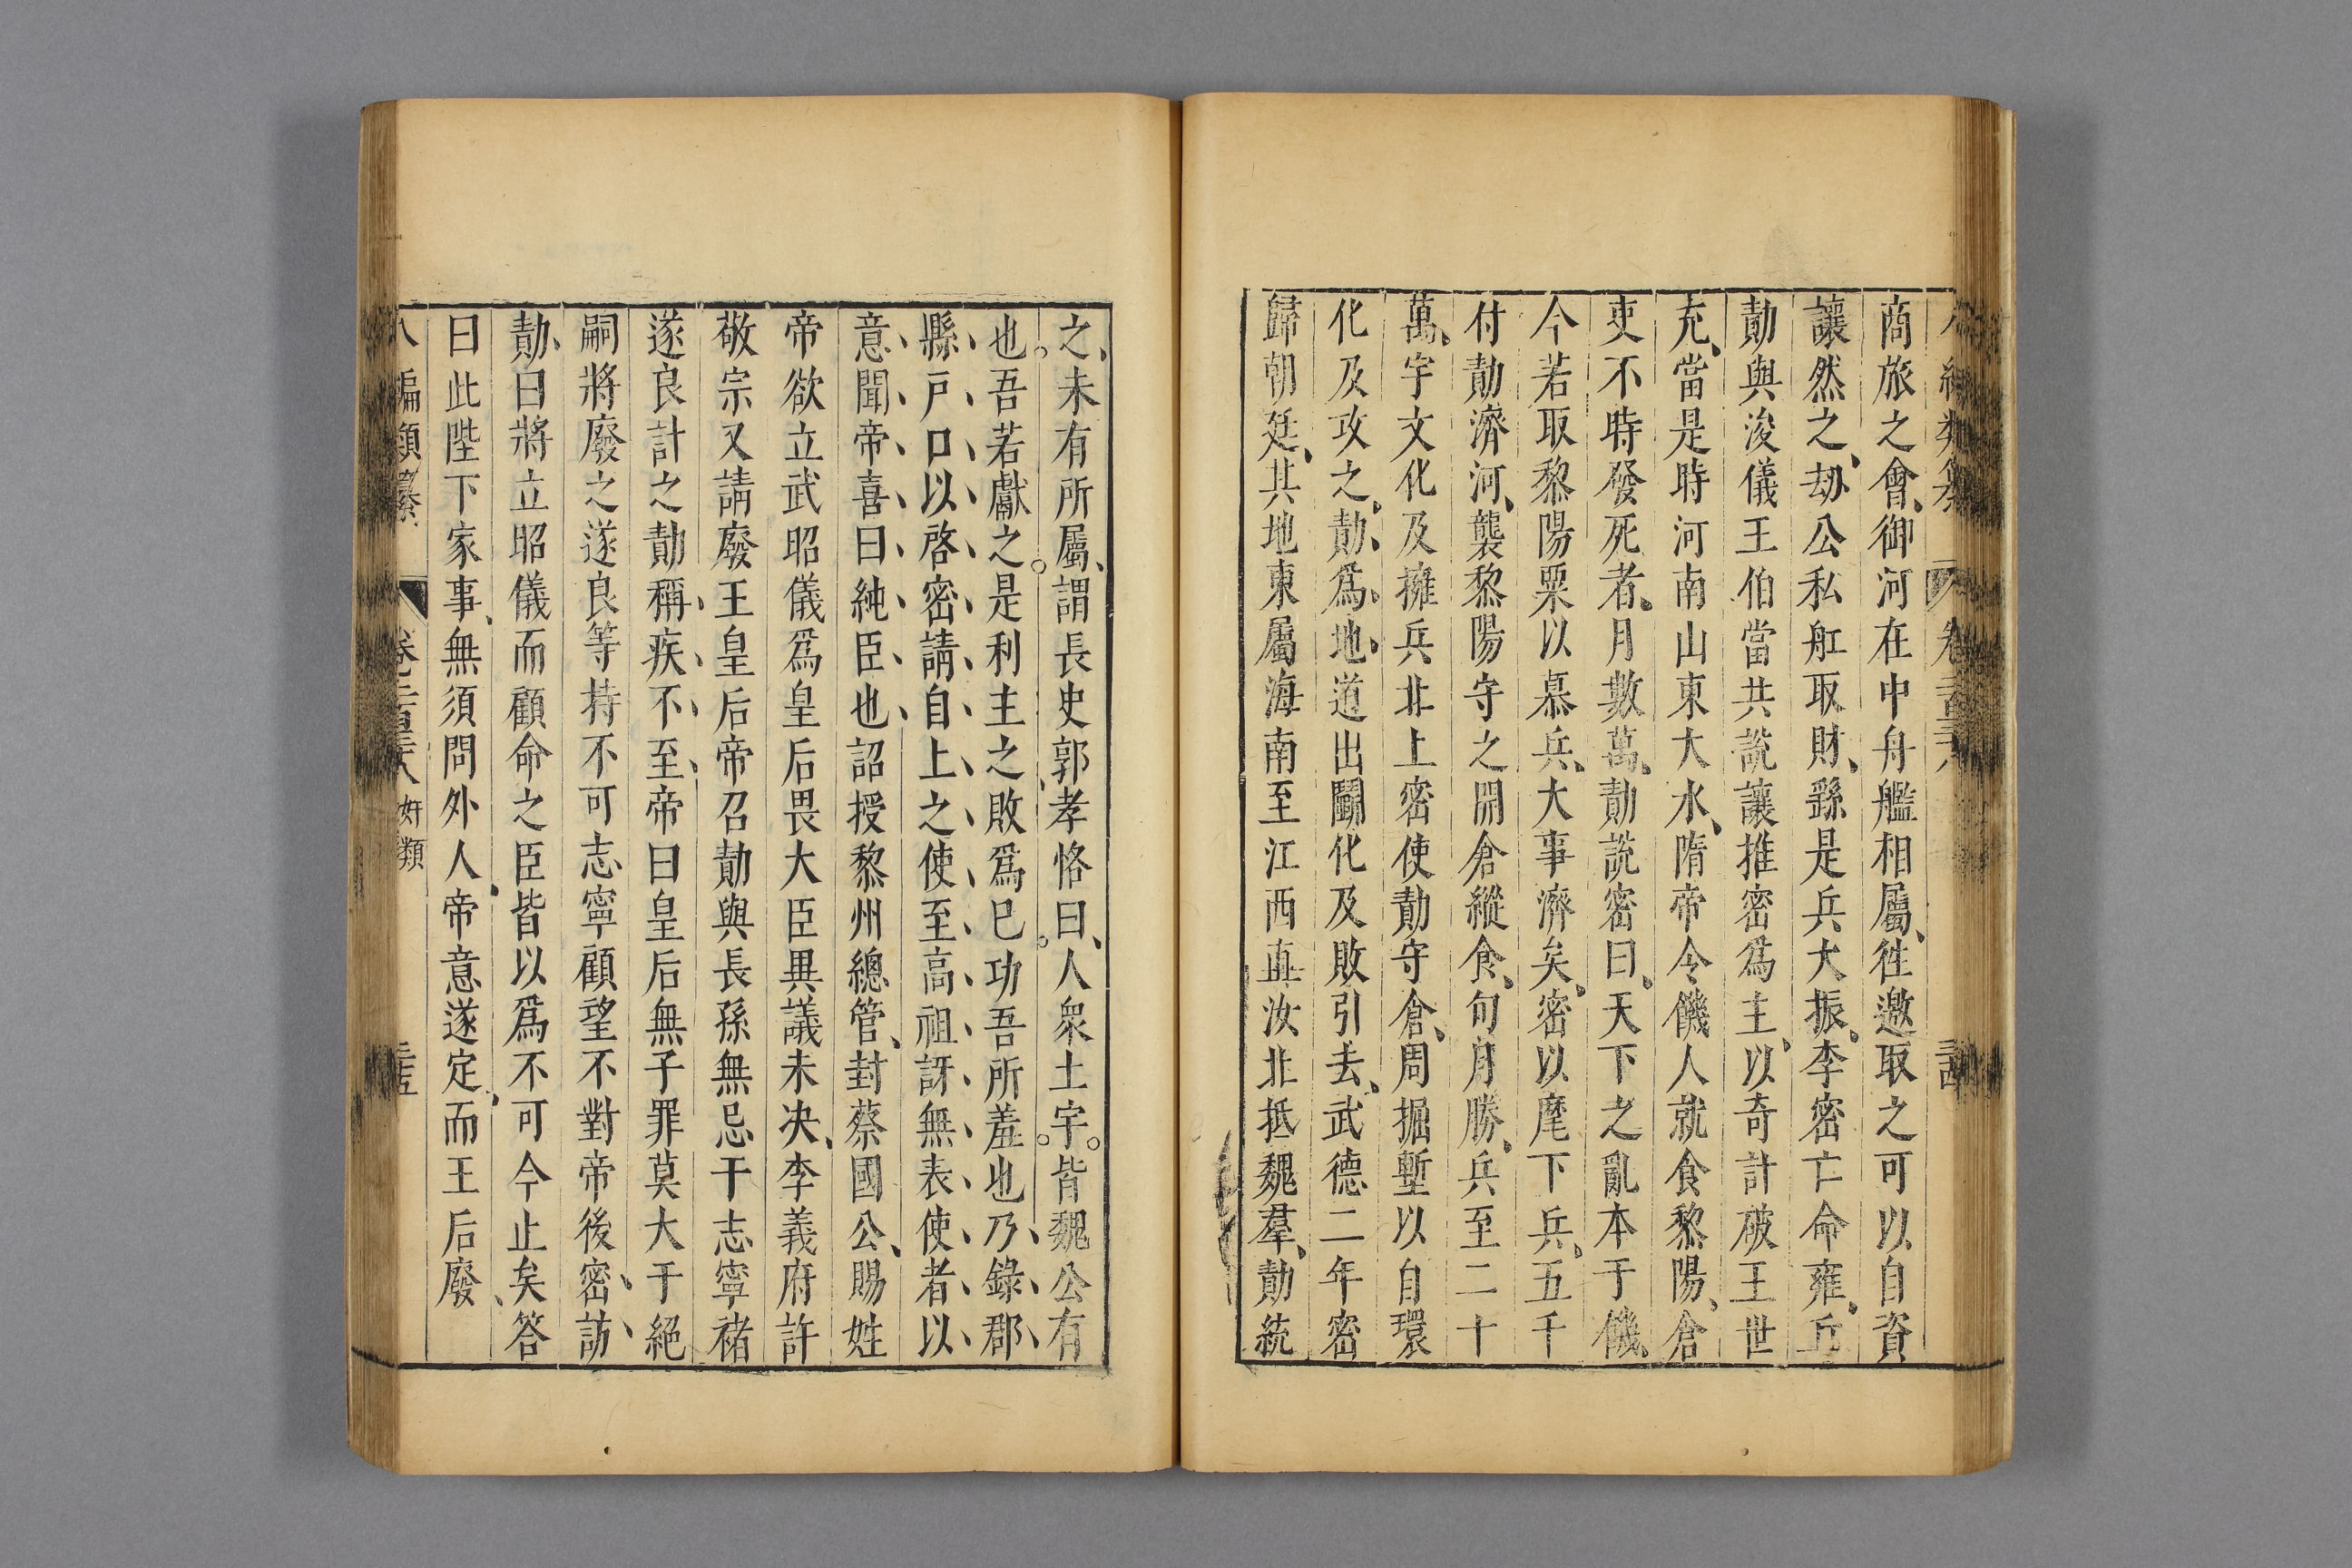 商旅之會御河在中舟艦相屬往邀取之可以自資
讓然之劫公私舡取財繇是兵大振李密亡命雍丘
勣與浚儀王伯當共說讓推密爲主以奇計破王世
充當是時河南山東大水隋帝令饑人就食黎陽倉
吏不時發死者月數萬勣說密曰天下之亂本于饑
今若取黎陽粟以募兵大事濟矣密以麾下兵五千
付勣濟河襲黎陽守之開倉縱食旬月勝兵至二十
萬宇文化及擁兵北上密使勣守倉周掘塹以自環
化及攻之勣爲地道出鬭化及敗引去武德二年密
歸朝廷其地東屬海南至江西直汝北抵魏羣勣統
之未有所屬謂長史郭孝恪曰人衆土宇皆魏公有
也吾若獻之是利主之敗爲已功吾所羞也乃錄郡
縣戸口以啓密請自上之使至高祖訝無表使者以
意聞帝喜曰純臣也詔授黎州總管封蔡國公賜姓
帝欲立武昭儀爲皇后畏大臣異議未决李義府許
敬宗又請廢王皇后帝召勣與長孫無忌于志寧褚
遂良計之勣稱疾不至帝曰皇后無子罪莫大于絕
嗣將廢之遂良等持不可志寧顧望不對帝後密訪
勣曰將立昭儀而顧命之臣皆以爲不可今止矣答
曰此陛下家事無須問外人帝意遂定而王后廢
八編類纂 卷二百三十八 奸類 三十五